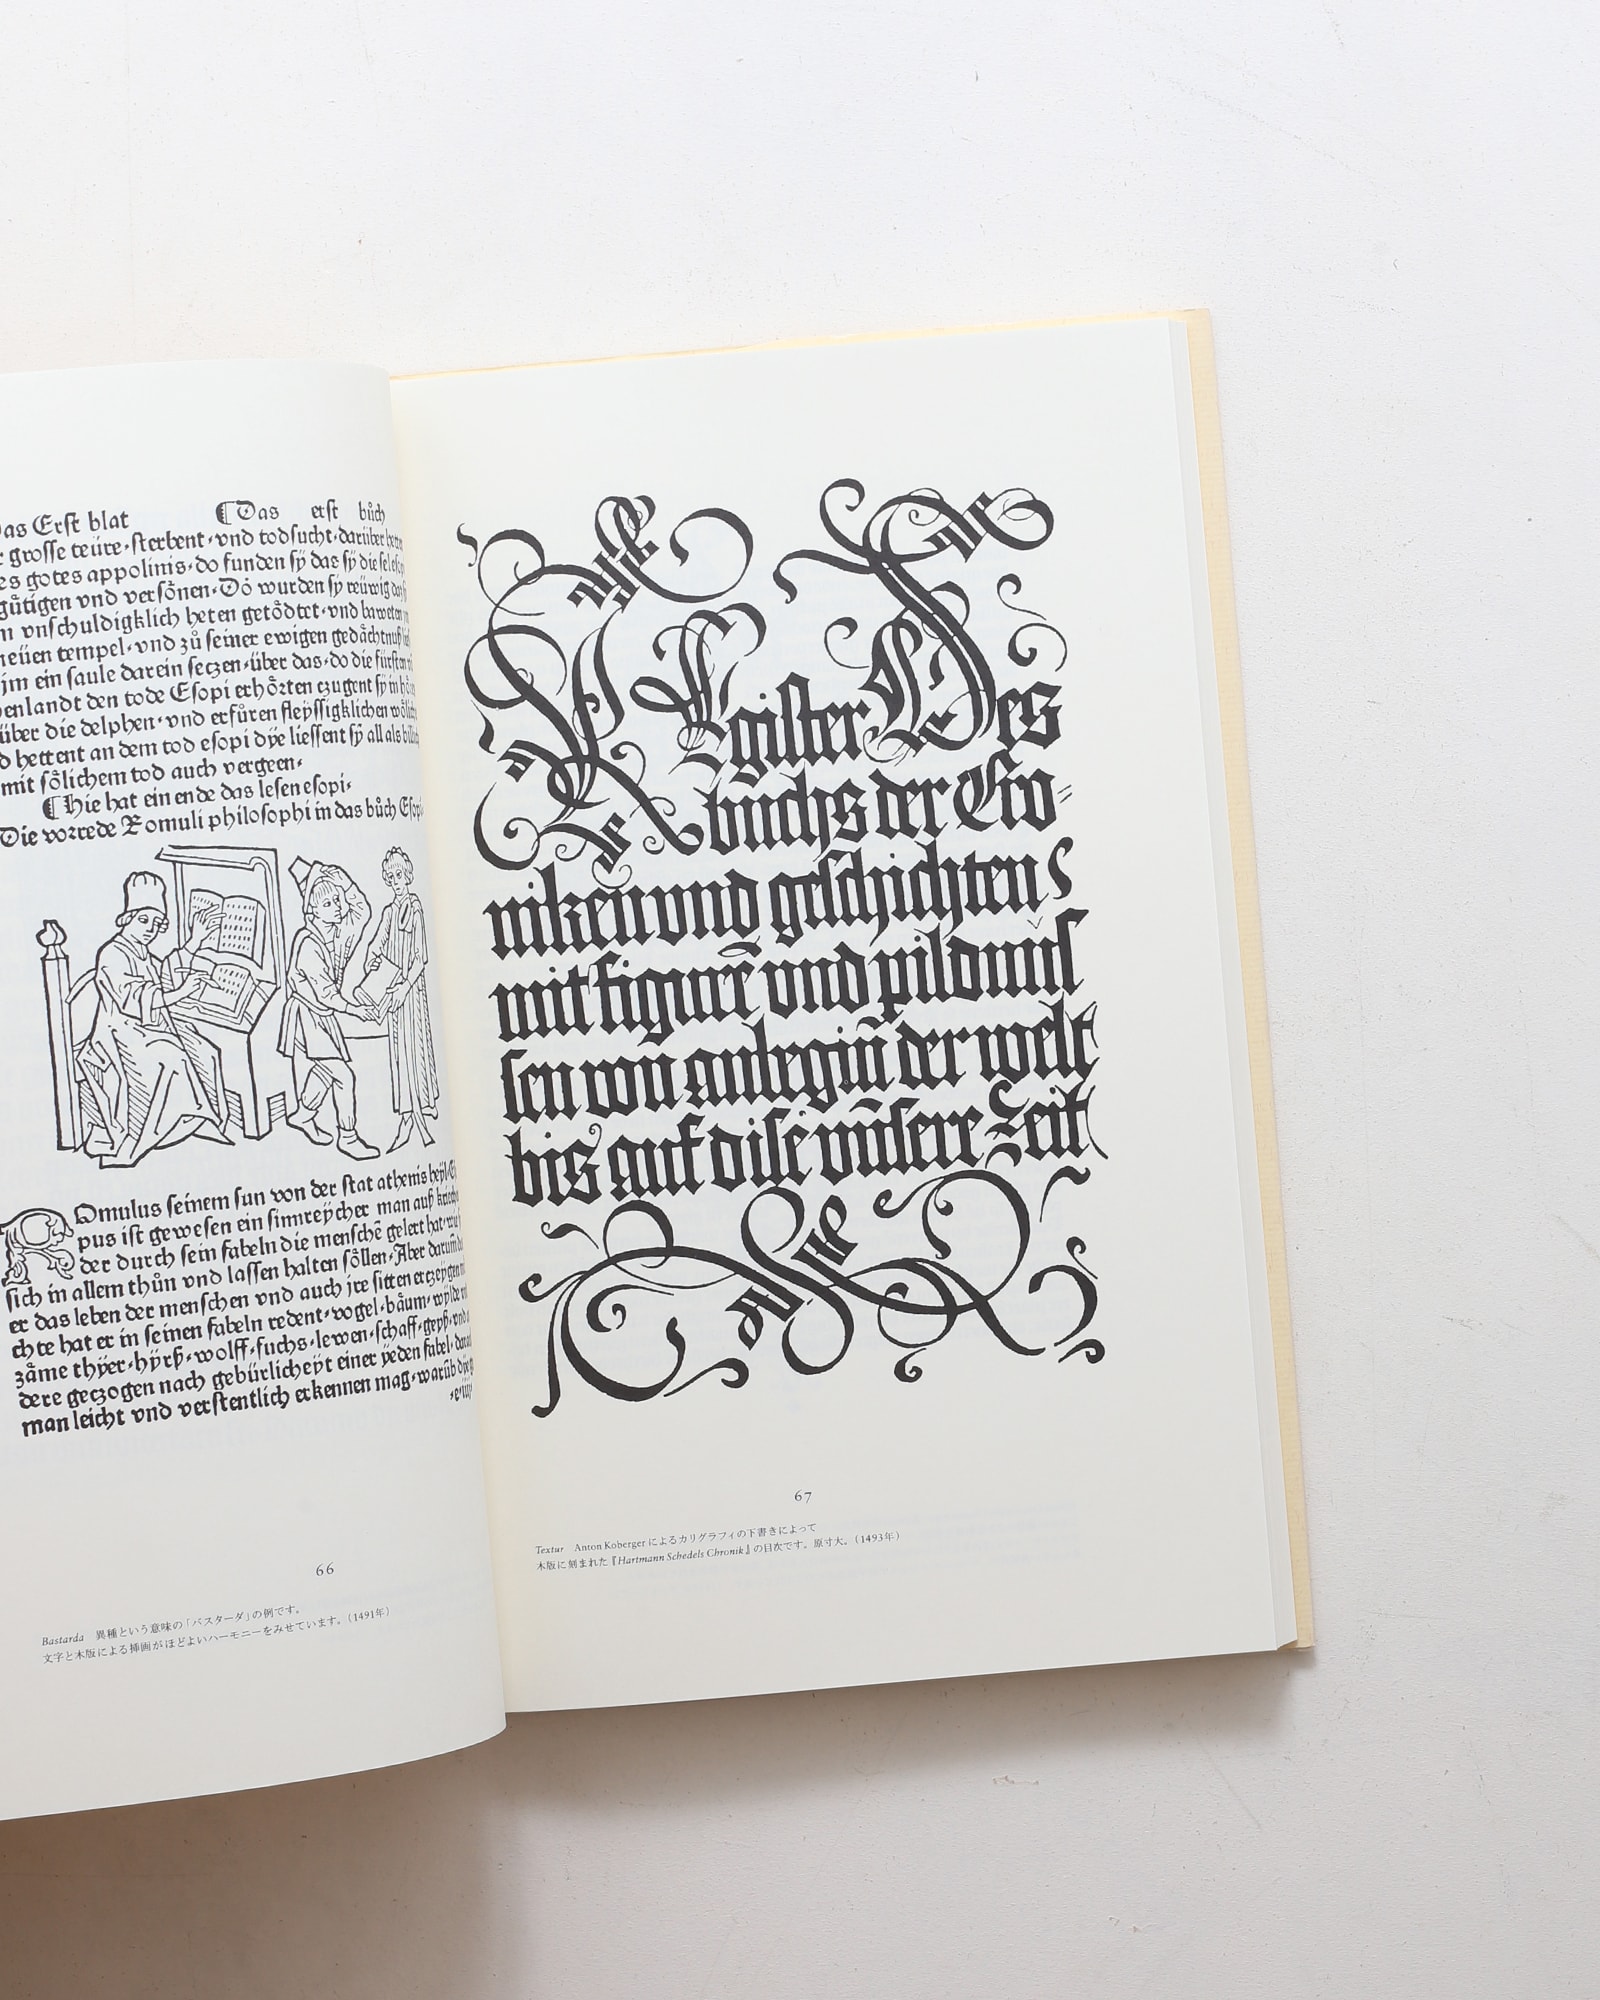 Das Erst blat ¶Das erst bůch
grosse teüre·sterbent·vnd todsucht·darüber
gotes appolinis·do funden sÿ das sÿ die
gůtigen vnd verso̊nen·Do wurden sÿ reüwig
vnschuldigklich heten geto̊dtet·vnd baweten
neüen tempel·vnd zů seiner ewigen geda̋chtnuß
jm ein saule darein seczen·über das·do die fürsten
den tode Esopi erho̊rten czugent sÿ in
über die delphen·vnd erfůren fleÿssigklichen
hettent an dem tod esopi dÿe liessent sÿ all als
mit so̊lichem tod auch vergeen·
¶Hie hat ein ende das lesen esopi·
Die vorrede Romuli philosophi in das bůch
ROmulus seinem sun von der stat athenis heÿl·
pus ist gewesen ein sinnreÿcher man auß
der durch sein fabeln die menschē gelert hat·
sich in allem thůn vnd lassen halten so̊llen·Aber
er das leben der menschen vnd auch jre sitten
chte hat er in seinen fabeln redent·vogel·ba̋um·
za̋me thÿer·hÿrß·wolff·fuchs·lewen·schaff·
dere geczogen nach gebürlicheÿt einer ÿeden fabel·
man leicht vnd verstentlich erkennen mag·
66
Bastarda 異種という意味の「バスターダ」の例です。
文字と木版による挿画がほどよいハーモニーをみせています。(1491年)
REgister Des
buchs der Cro=
niken vnd geschichten
mit figurē vnd pildnus
sen von anbegiñ der welt
bis auf dise vñsere Zeit
67
Textur Anton Koberger によるカリグラフィの下書きによって
木版に刻まれた『Hartmann Schedels Chronik』の目次です。原寸大。(1493年)